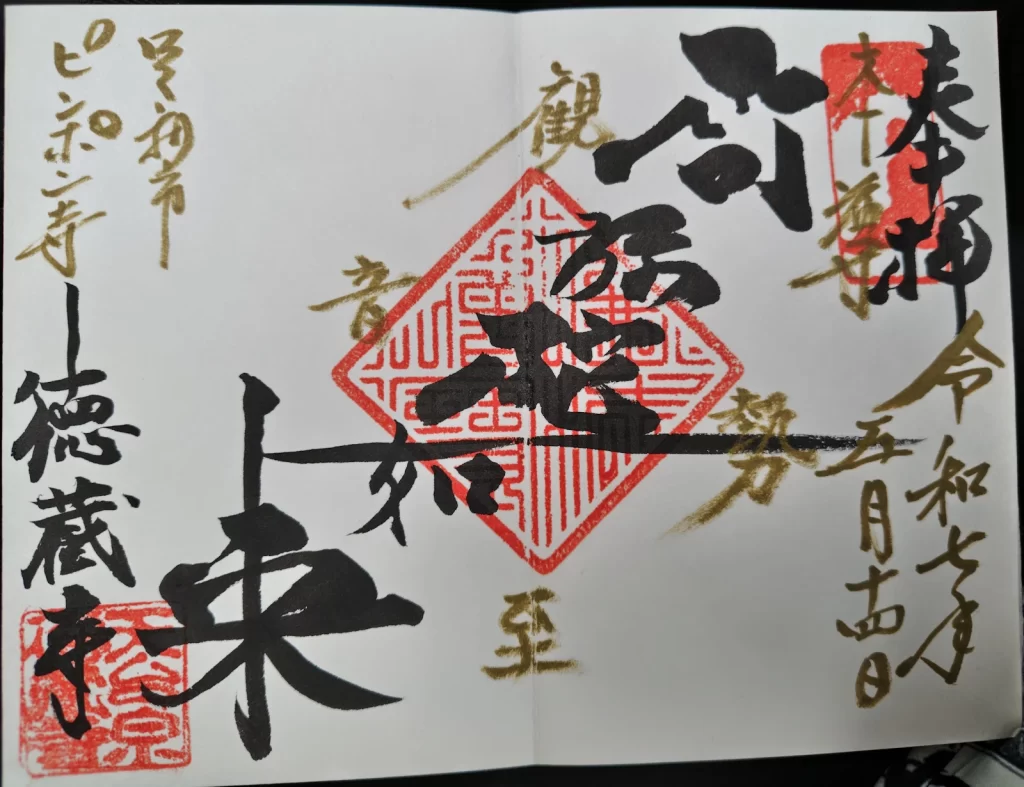 奉拝
令和七年
五月十四日
本尊
阿弥陀如来
觀音
勢至
足利市
ピンポン寺
徳蔵寺